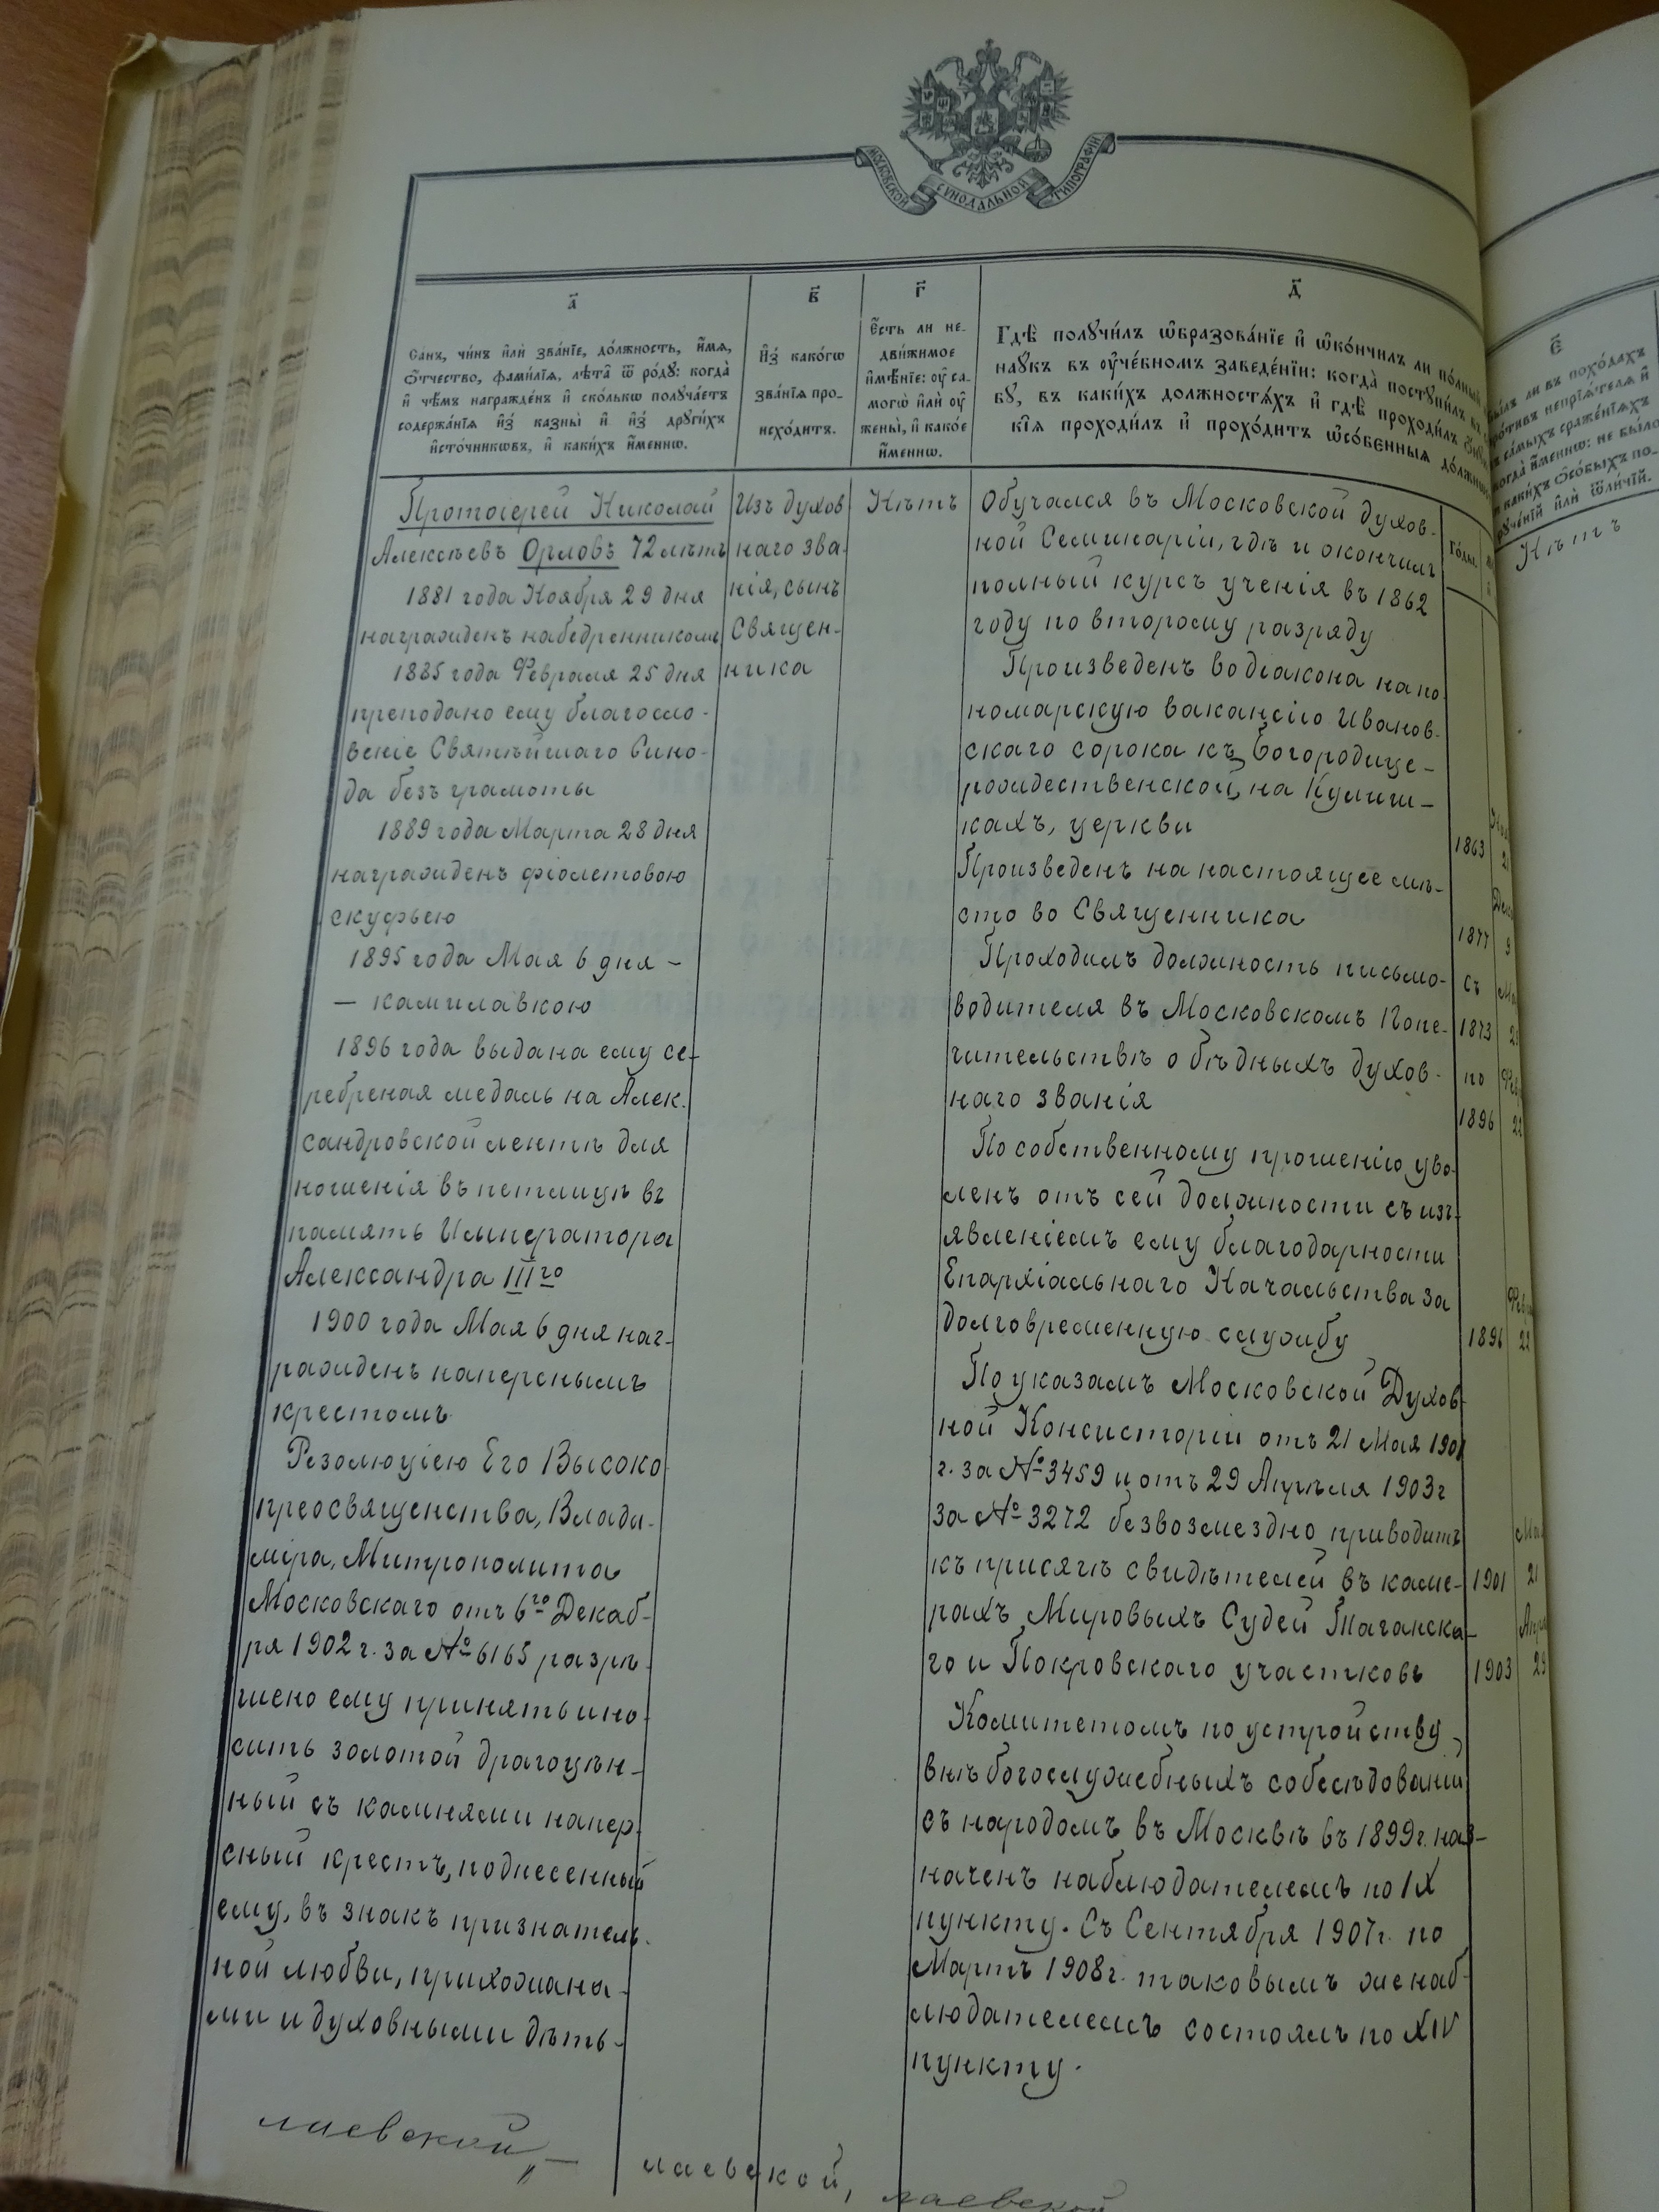 МОСКОВСКОЙ СѴНОДАЛЬНОЙ ТИПОГРАФІИ
а҃
Са́нъ, чи́нъ и҆лѝ зва́нїе, до́лжность, и҆́мѧ,
ѻ҆́тчество, фами́лїѧ, лѣ́та ѿ ро́дꙋ: когда̀
и҆ чѣ́мъ награжде́нъ и҆ ско́лькѡ получа́етъ
содержа́нїѧ и҆з̾ казны̀ и҆ и҆з̾ дрꙋги́хъ
и҆сто́чникѡвъ, и҆ каки́хъ и҆́меннѡ.
в҃
И҆з̾ како́гѡ
зва́нїѧ про-
исхо́дитъ.
г҃
Е҆́сть ли не-
дви́жимое
и҆мѣ́нїе: ᲂу҆ са-
могѡ̀ и҆лѝ ᲂу҆
жены̀, и҆ како́е
и҆́меннѡ.
д҃
Гдѣ̀ полꙋчи́лъ ѡ҆бразова́нїе и҆ ѡ҆ко́нчилъ ли по́лный
наꙋкъ въ ᲂу҆че́бномъ заведе́нїи: когда̀ постꙋпи́лъ въ
бꙋ, въ каки́хъ должностѧ́хъ и҆ гдѣ̀ проходи́лъ
кїѧ проходи́лъ и҆ прохо́дитъ ѡ҆со́бенныѧ
Го́ды.
Протоіерей Николай
Алексѣевъ Орловъ 72 лѣтъ
1881 года Ноября 29 дня
награжденъ набедренникомъ
1885 года Февраля 25 дня
преподано ему благосло-
веніе Святѣйшаго Сино-
да безъ грамоты
1889 года Марта 28 дня
награжденъ фіолетовою
скуфьею
1895 года Мая 6 дня –
– камилавкою
1896 года выдана ему се-
ребреная медаль на Алек-
сандровской лентѣ для
ношенія въ петлицѣ въ
память Императора
Александра III го
1900 года Мая 6 дня наг-
ражденъ наперснымъ
крестомъ
Резолюціею Его Высоко
преосвященства, Влади-
міра, Митрополита
Московскаго отъ 6го Декаб-
ря 1902 г. за № 6165 разрѣ-
шено ему принять и но-
сить золотой драгоцѣн-
ный съ камнями напер-
сный крестъ, поднесенный
ему, въ знакъ признатель-
ной любви, прихожана-
ми и духовными дѣть-
Изъ духов
наго зва-
нія, сынъ
Священ-
ника
Нѣтъ
Обучался въ Московской духов-
ной Семинаріи, гдѣ и окончилъ
полный курсъ ученія въ 1862
году по второму разряду
Произведенъ во діакона на по
номарскую вакансію Иванов-
скаго сорока къ Богородице-
рождественской, на Кулиш-
кахъ, церкви
1863
Произведенъ на настоящее мѣ-
сто во Священника
1877 9
Проходилъ должность письмо-
водителя въ Московскомъ Попе-
чительствѣ о бѣдныхъ духов-
наго званія
съ
1873
по
1896 22
По собственному прошенію уво-
ленъ отъ сей должности съ изъ-
явленіемъ ему благодарности
Епархіальнаго Начальства за
долговременную службу
1896 22
По указамъ Московской Духов-
ной Консисторіи отъ 21 Мая 1901
г. за № 3459 и отъ 29 Апрѣля 1903 г
за № 3272 безвозмездно приводитъ
къ присягѣ свидѣтелей въ каме-
рахъ Мировыхъ Судей Таганска-
го и Покровскаго участковъ
1901 21
1903 29
Комитетомъ по устройству
внѣбогослужебныхъ собесѣдованій
съ народомъ въ Москвѣ въ 1899 г. наз-
наченъ наблюдателемъ по IX
пункту. Съ Сентября 1907 г. по
Мартъ 1908 г. таковымъ же наб-
людателемъ состоялъ по XIV
пункту.
лаевской,, –
лаевской, лаевской
є҃
ли въ похо́дахъ
про́тивъ непрїѧ́телѧ и҆
са́мыхъ сраже́нїѧхъ
когда̀ и҆́меннѡ: не бы́ло
каки́хъ ѻ҆со́быхъ по-
рꙋче́нїй и҆лѝ ѿли́чїй.
Нѣтъ